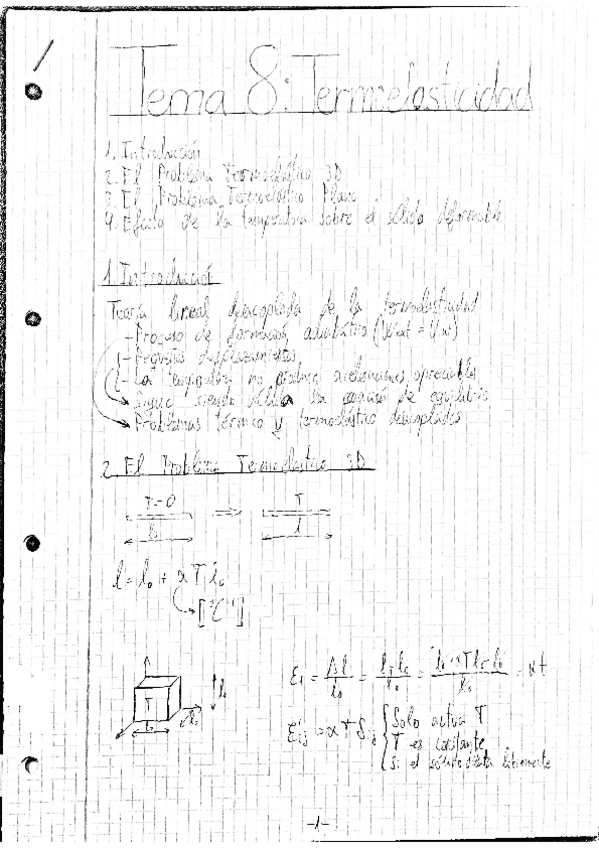 Tema 8: Termoelasticidad
1. Introducción
2. El Problema Termoelástico 3D
3. El Problema Termoelástico Plano
4. Efecto de la temperatura sobre el sólido deformable
1. Introducción
Teoría lineal desacoplada de la termoelasticidad
- Proceso de formación adiabático (Wext = U)
- Pequeños desplazamientos
- La temperatura no produce aceleraciones apreciables
Sigue siendo válida la ecuación de equilibrio
Problemas térmico y termoelástico desacoplados
2. El Problema Termoelástico 3D
T=0 ⇒ T
l₀ l
l = l₀ + αTl₀
[°C⁻¹]
T l₀ l₀ l₀
εᵢ = Δl/l₀ = (l-l₀)/l₀ = (l₀+αTl₀-l₀)/l₀ = αt
εᵢⱼ = αTδᵢⱼ { Solo actúa T
T es constante
Si el sólido dilata libremente
-1-